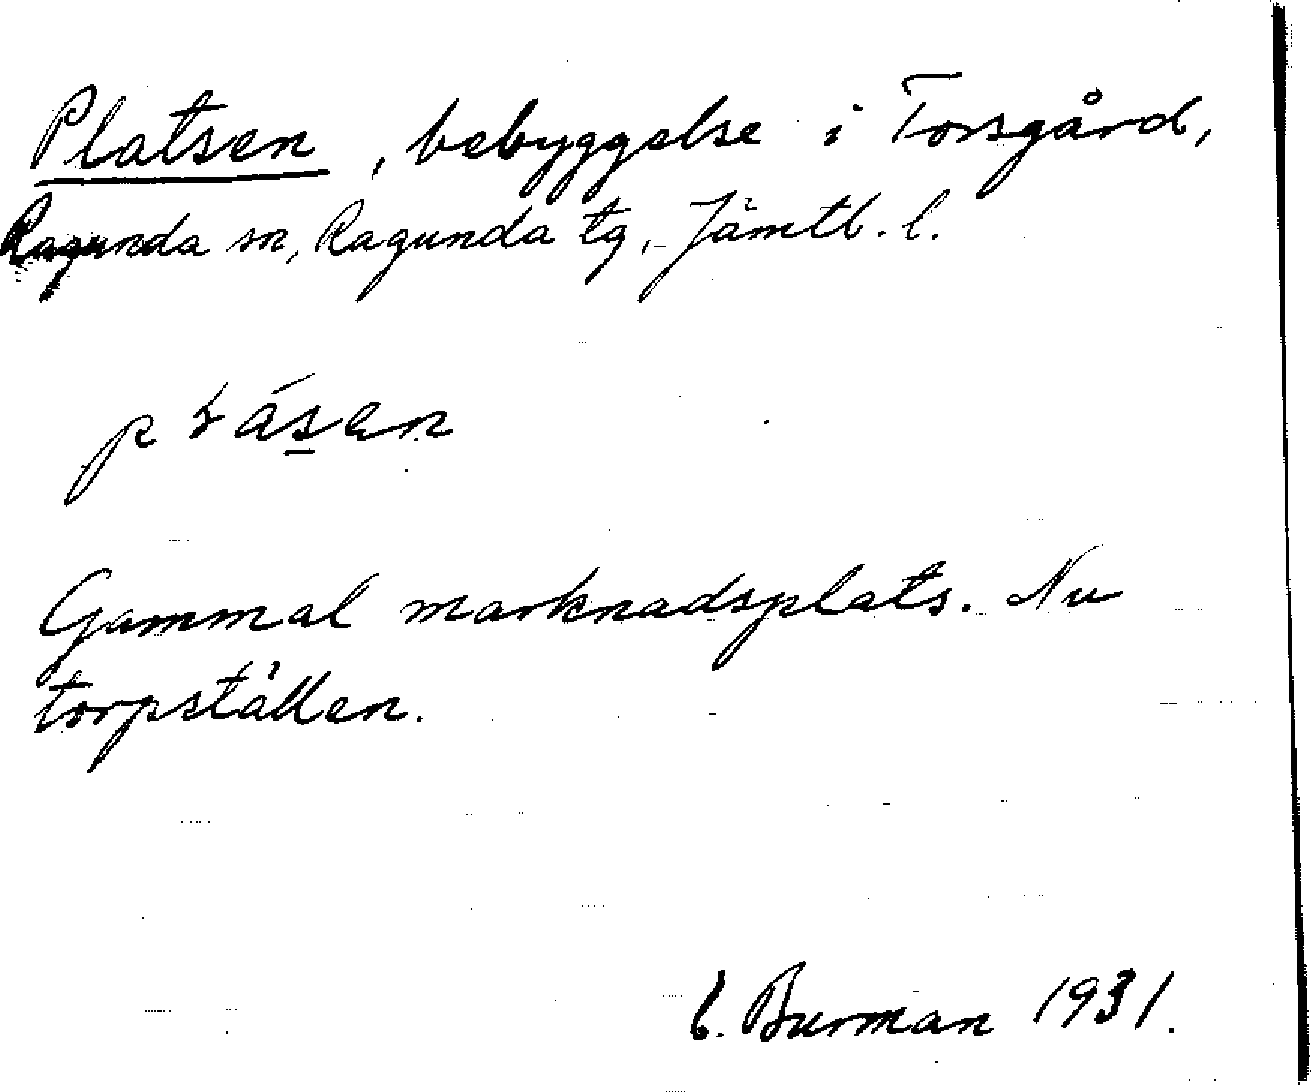 Platsen, bebyggelse i Torsgård,
Ragunda sn, Ragunda tg, Jämtl. l.
Gammal marknadsplats. Nu
torpställen.
Burman 1931.